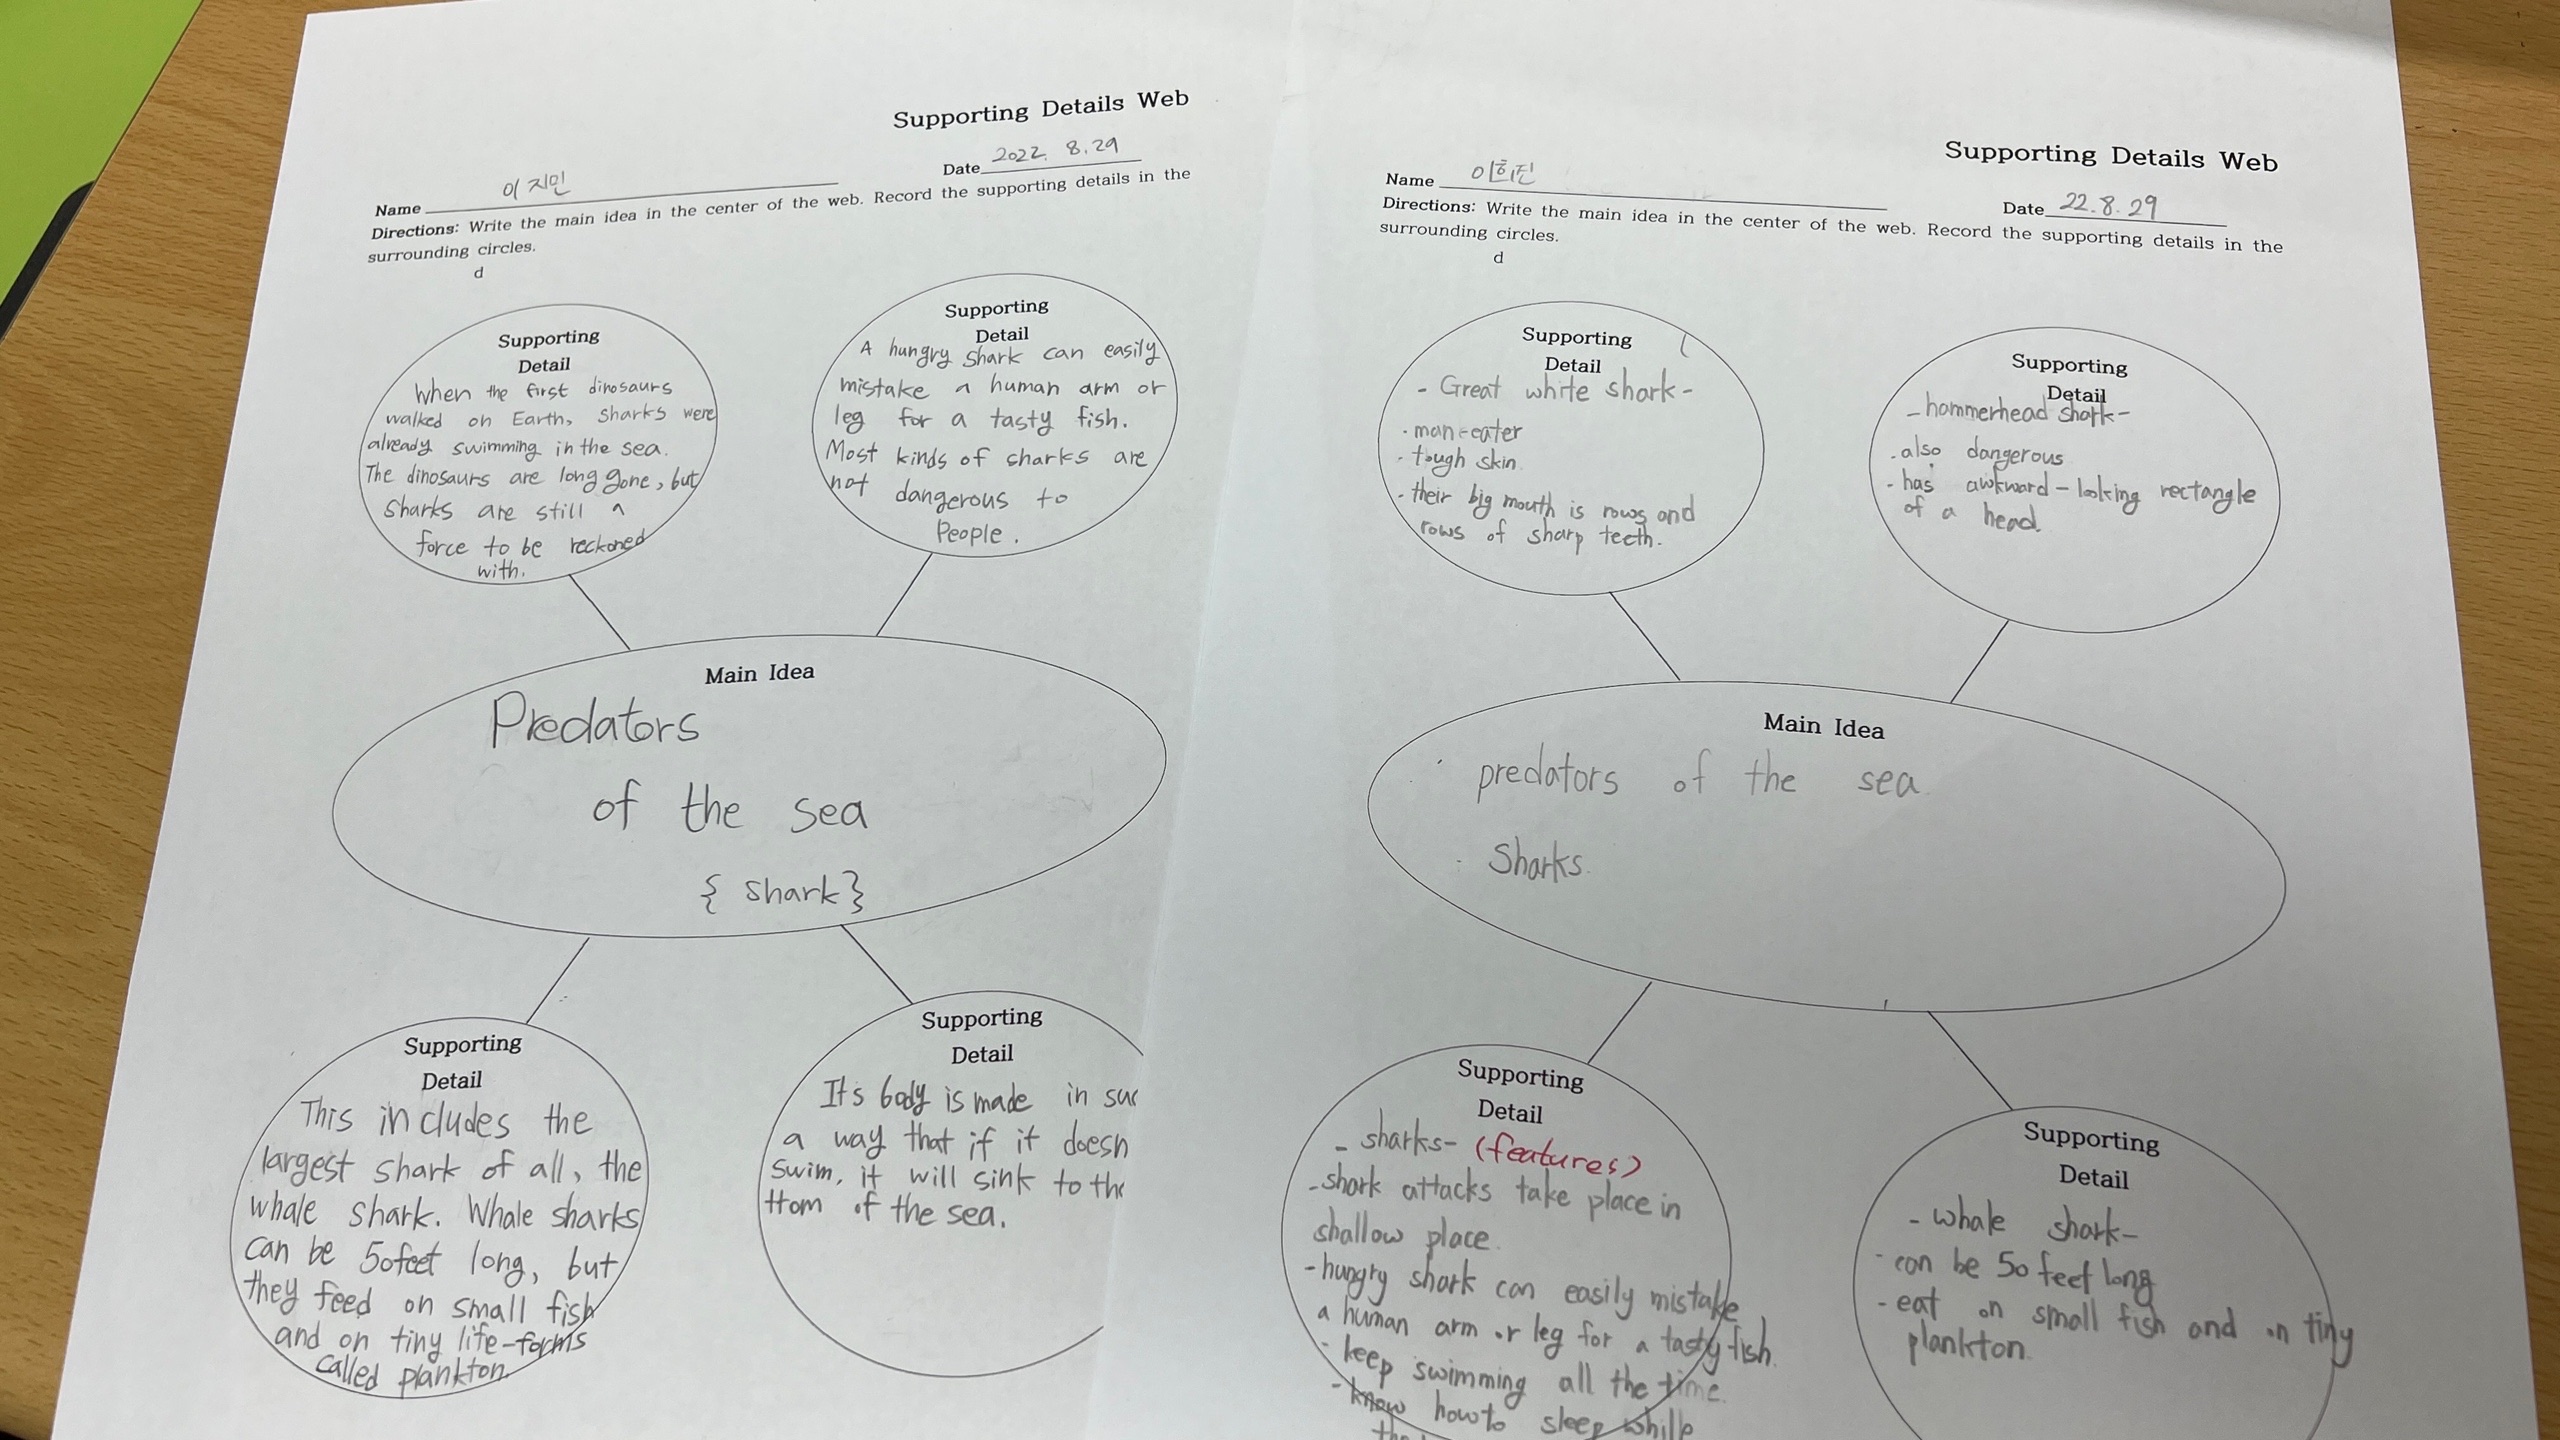 Supporting Details Web
Name 이지민
Date 2022. 8.29
Directions: Write the main idea in the center of the web. Record the supporting details in the
surrounding circles.
d
Supporting
Detail
When the first dinosaurs
walked on Earth, sharks were
already swimming in the sea.
The dinosaurs are long gone, but
sharks are still a
force to be reckoned
with.
Supporting
Detail
A hungry shark can easily
mistake a human arm or
leg for a tasty fish.
Most kinds of sharks are
not dangerous to
People.
Main Idea
Predators
of the sea
{ shark}
Supporting
Detail
This includes the
largest shark of all, the
whale shark. Whale sharks
can be 50feet long, but
they feed on small fish
and on tiny life-forms
called plankton.
Supporting
Detail
It's body is made in suc
a way that if it doesn
swim, it will sink to the
ttom of the sea.
Supporting Details Web
Name 이희진
Date 22.8.29
Directions: Write the main idea in the center of the web. Record the supporting details in the
surrounding circles.
d
Supporting
Detail
- Great white shark-
· man-eater
· tough skin.
· their big mouth is rows and
rows of sharp teeth.
Supporting
Detail
-hammerhead shark-
· also dangerous
· has awkward-looking rectangle
of a head.
Main Idea
predators of the sea.
· Sharks.
Supporting
Detail
- sharks- (features)
-shark attacks take place in
shallow place.
-hungry shark can easily mistake
a human arm or leg for a tasty fish.
- keep swimming all the time.
-know how to sleep while
Supporting
Detail
- whale shark-
- can be 50 feet long
- eat on small fish and on tiny
plankton.